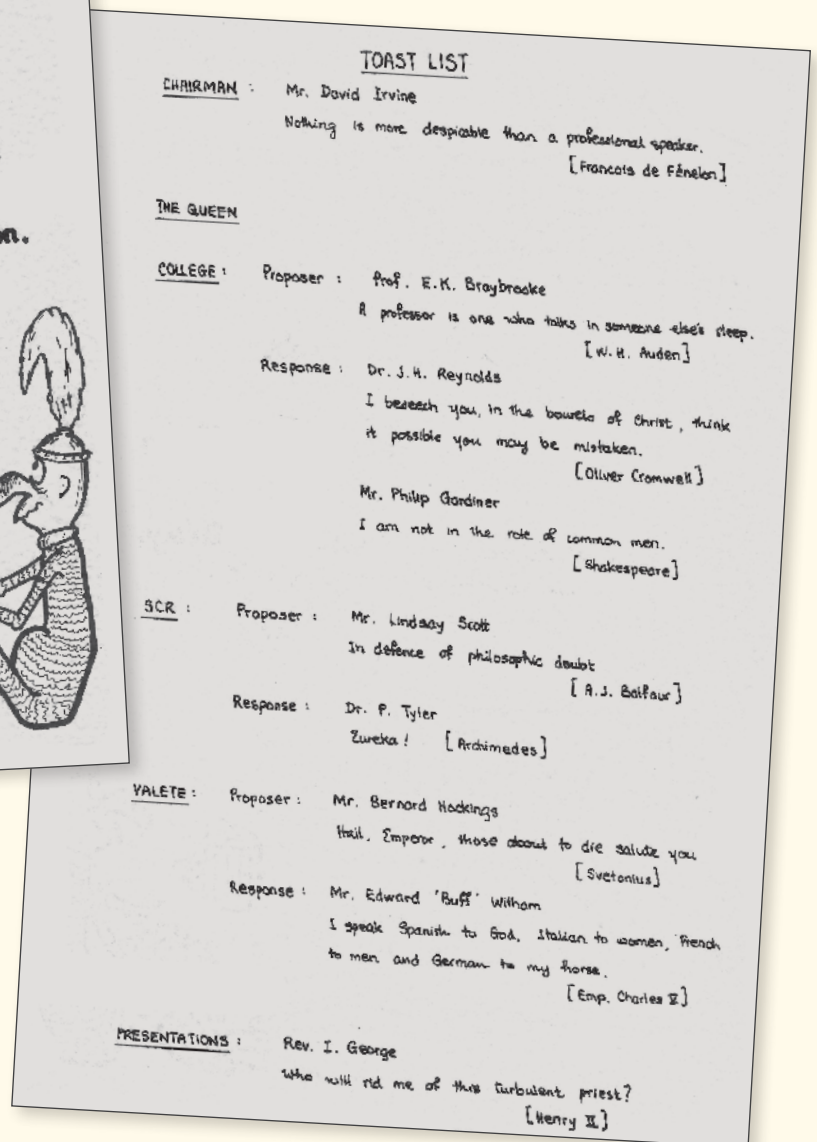 n.
TOAST LIST
CHAIRMAN : Mr. David Irvine
Nothing is more despicable than a professional speaker.
[Francois de Fénelon]
THE QUEEN
COLLEGE : Proposer : Prof. E.K. Braybrooke
A professor is one who talks in someone else's sleep.
[W.H. Auden]
Response : Dr. J.H. Reynolds
I beseech you, in the bowels of Christ, think
it possible you may be mistaken.
[Oliver Cromwell]
Mr. Philip Gardiner
I am not in the role of common men.
[Shakespeare]
SCR : Proposer : Mr. Lindsay Scott
In defence of philosophic doubt
[A.J. Balfour]
Response : Dr. P. Tyler
Eureka! [Archimedes]
VALETE : Proposer : Mr. Bernard Hockings
Hail, Emperor, those about to die salute you
[Svetonius]
Response : Mr. Edward 'Buff' Witham
I speak Spanish to God, Italian to women, French
to men and German to my horse.
[Emp. Charles V]
PRESENTATIONS : Rev. I. George
Who will rid me of this turbulent priest?
[Henry II]